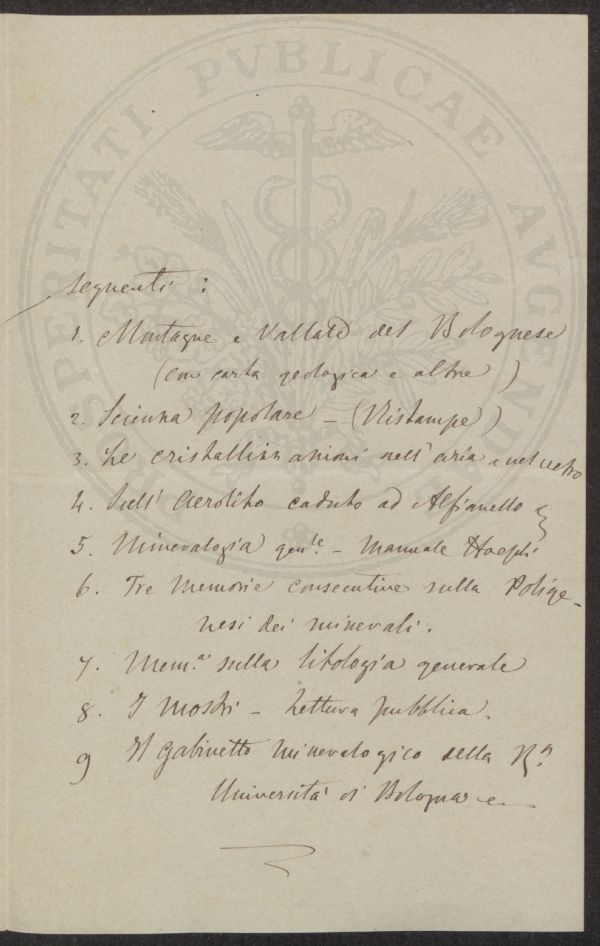 PROSPERITATI PVBLICAE AVGENDAE
seguenti :
1. Montagne e Vallate del Bolognese
(con carta geologica e altre )
2. Scienza popolare – (Ristampe)
3. Le cristallizzazioni nell'aria e nel vetro
4. Sull' Aerolito caduto ad Alfianello
5. Mineralogia gen.le – Manuale Hoepli
6. Tre Memorie consecutive sulla Polige-
nesi dei minerali.
7. Mem.a sulla litologia generale
8. I mostri – Lettura pubblica.
9 Il Gabinetto mineralogico della R.a
Università di Bologna